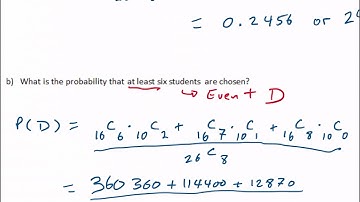 = 0.2456 or 2
b) What is the probability that at least six students are chosen?
→ Event D
P(D) = ₁₆C₆ · ₁₀C₂ + ₁₆C₇ · ₁₀C₁ + ₁₆C₈ · ₁₀C₀
₂₆C₈
= 360 360 + 114400 + 12870